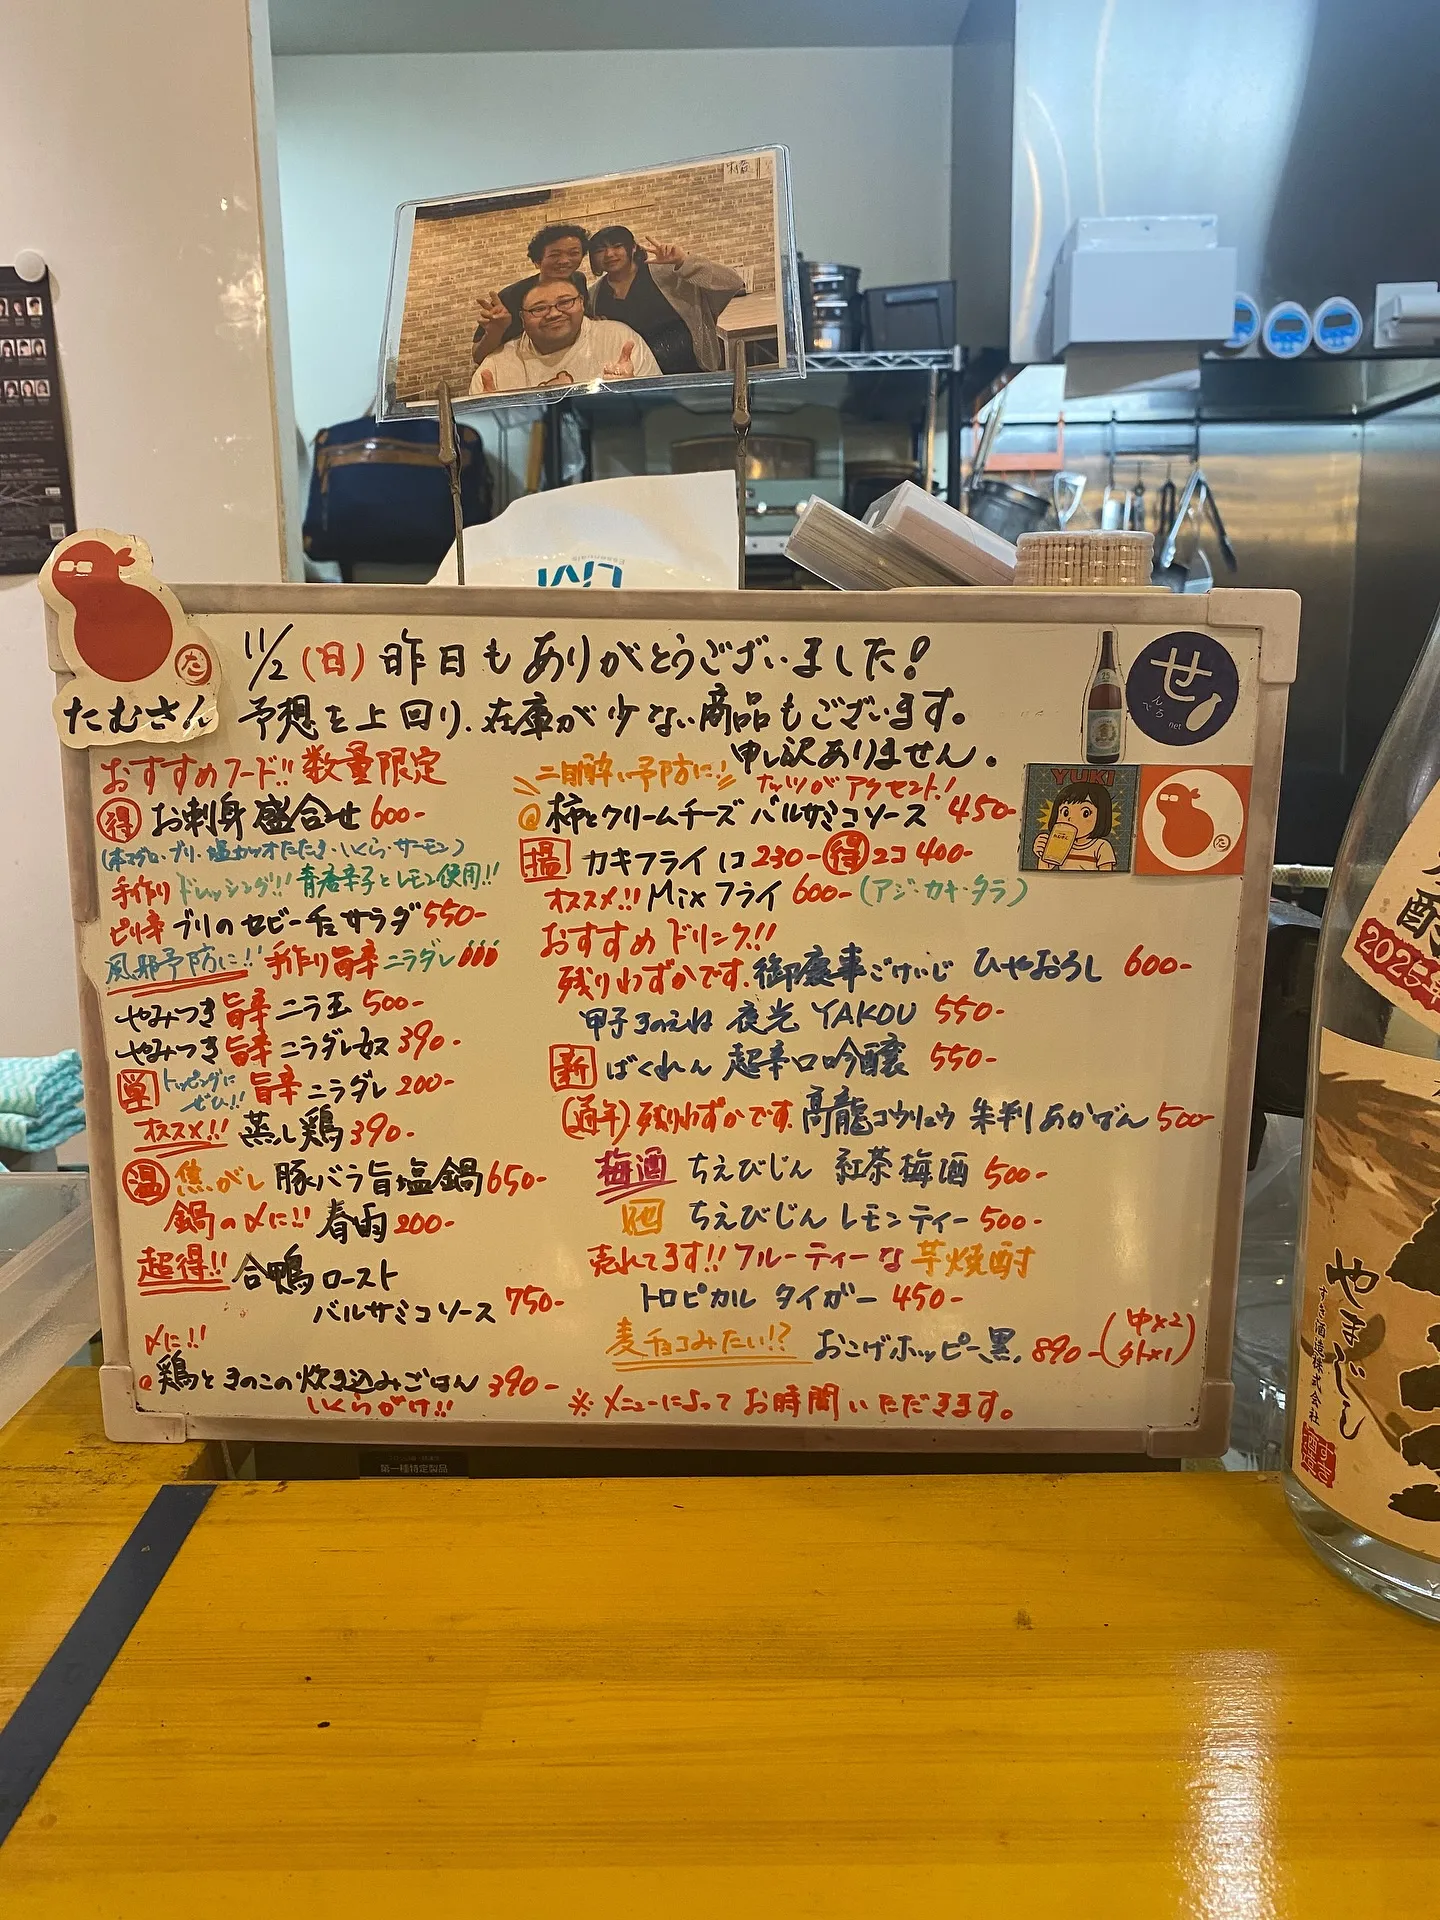 11/2(日) 昨日もありがとうございました!
予想を上回り、在庫が少ない商品もございます。
申し訳ありません。
たむさん
た
せ
んべろ
net
YUKI
おすすめフード!! 数量限定
得 お刺身盛合せ 600-
(本マグロ・ブリ・塩カツオたたき・いくら・サーモン)
手作りドレッシング!! 青唐辛子とレモン使用!!
ピリ辛 ブリのセビーチェサラダ 550-
風邪予防に!! 手作り旨辛ニラダレ
やみつき旨辛ニラ玉 500-
やみつき旨辛ニラダレ奴 390-
単 トッピングにぜひ!! 旨辛ニラダレ 200-
オススメ!! 蒸し鶏 390-
温 焦がし豚バラ旨塩鍋 650-
鍋の〆に!! 春雨 200-
超得!! 合鴨ロースト
バルサミコソース 750-
〆に!!
鶏ときのこの炊き込みごはん 390-
いくらがけ!!
二日酔い予防に!! ナッツがアクセント!
柿とクリームチーズ バルサミコソース 450-
揚 カキフライ 1コ 230- 得 2コ 400-
オススメ!! Mixフライ 600- (アジ・カキ・タラ)
おすすめドリンク!!
残りわずかです。御慶事 ごけいじ ひやおろし 600-
甲子 きのえね 夜光 YAKOU 550-
新 ばくれん 超辛口吟醸 550-
(通年) 残りわずかです。高龍 コウリュウ 朱判 あかばん 500-
梅酒 ちえびじん 紅茶梅酒 500-
ちえびじん レモンティー 500-
売れてます!! フルーティーな芋焼酎
トロピカル タイガー 450-
麦チョコみたい!? おこげホッピー黒。890- (中×2
外×1)
※メニューによってお時間いただきます。
第一種特定製品
2025
やまどん